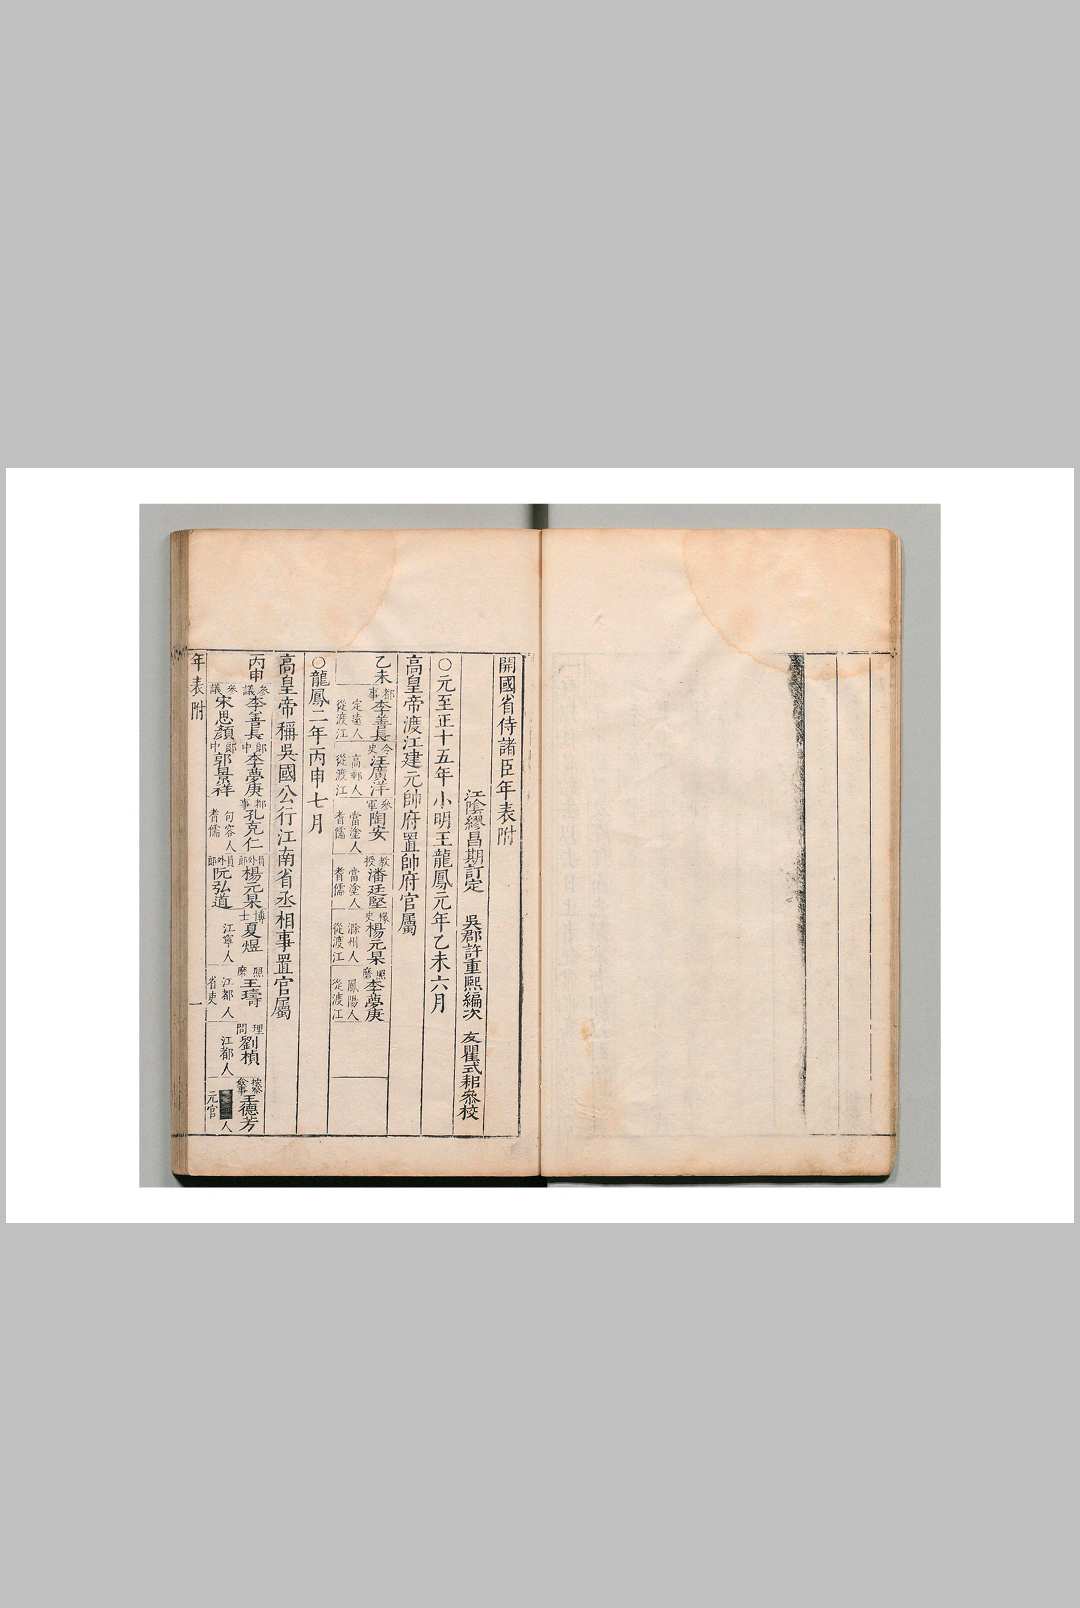 開國省侍諸臣年表附
江陰繆昌期訂定 吳郡許重熙編次 友瞿式耜叅校
○元至正十五年小明王龍鳳元年乙未六月
高皇帝渡江建元帥府置帥府官屬
乙未 都事李善長 令史汪廣洋 叅軍陶安 教授潘廷堅 掾史楊元杲 照磨李夢庚
定遠人從渡江 高郵人從渡江 當塗人耆儒 當塗人耆儒 滁州人從渡江 鳳陽人從渡江
○龍鳳二年丙申七月
高皇帝稱吳國公行江南省丞相事置官屬
丙申 叅議李善長 郎中李夢庚 都事孔克仁 員外郎楊元杲 博士夏煜 照磨王璹 理問劉楨 按察僉事王德芳
叅議宋思顏 郎中郭景祥 句容人耆儒 員外郎阮弘道 江寧人 江都人省吏 江都人 人元官
年表附 一